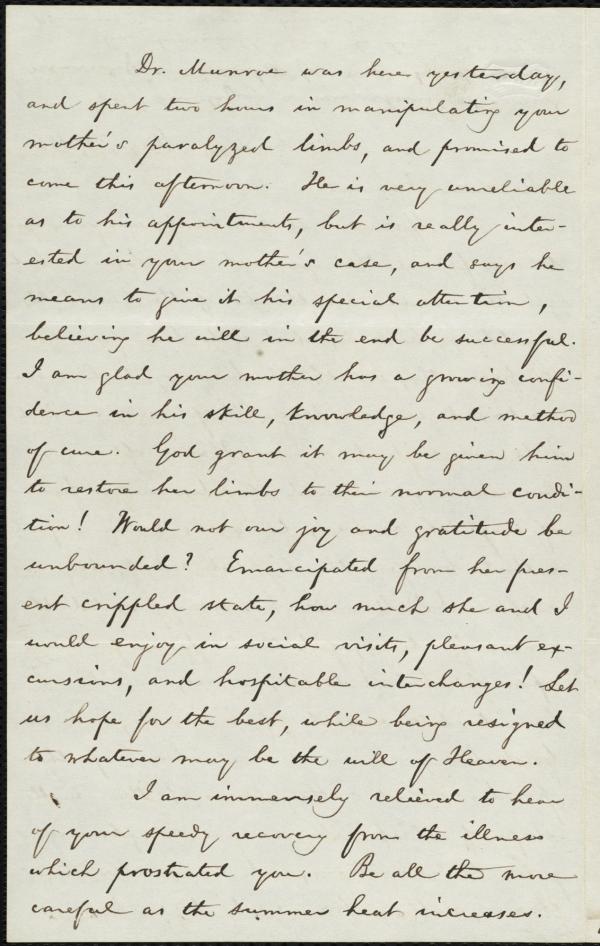 Dr. Munroe was here yesterday,
and spent two hours in manipulating your
mother's paralyzed limbs, and promised to
come this afternoon. He is very unreliable
as to his appointments, but is really inter-
ested in your mother's case, and says he
means to give it his special attention,
believing he will in the end be successful.
I am glad your mother has a growing confi-
dence in his skill, knowledge, and method
of cure. God grant it may be given him
to restore her limbs to their normal condi-
tion! Would not our joy and gratitude be
unbounded? Emancipated from her pres-
ent crippled state, how much she and I
would enjoy in social visits, pleasant ex-
cursions, and hospitable interchanges! Let
us hope for the best, while being resigned
to whatever may be the will of Heaven.
I am immensely relieved to hear
of your speedy recovery from the illness
which prostrated you. Be all the more
careful as the summer heat increases.